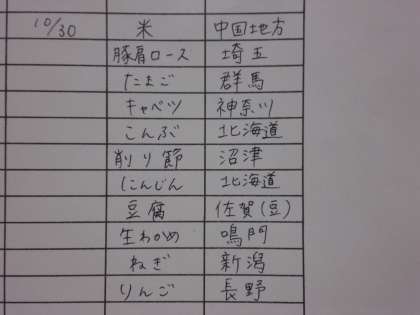 10/30 米 中国地方
豚肩ロース 埼玉
たまご 群馬
キャベツ 神奈川
こんぶ 北海道
削り節 沼津
にんじん 北海道
豆腐 佐賀(豆)
生わかめ 鳴門
ねぎ 新潟
りんご 長野